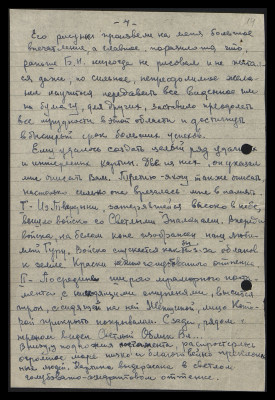 - 4 -
Его рисунки произвели на меня большое
впечатление, а главное, поразило то, что
раньше Б.Н. никогда не рисовал и не пытал-
ся даже, но сильное, непреодолимое жела-
ние научиться передавать все виденное им
на бумагу, для других, заставило преодолеть
все трудности в этой области и достигнуть
в кратчайший срок больших успехов.
Ему удалось создать целый ряд удачных
и интересных картин. Две из них, он указал
мне описать Вам. Третью я хочу также описать
настолько сильно она врезалась мне в память
I- Из Твердыни затерявшейся высоко в небе,
вышло войско со Светлыми Знаменами. Впереди
войска, на белом коне изображен наш люби-
мый Гуру. Войско спускается как бы из-за облаков
к земле. Краски
II- Посредине широкого мраморного поста-
мента с ступенями, высится
трон, с сидящей на ней Женщиной, лицо Кото-
рой прикрыто покрывалом. Сзади, рядом с
троном виден Светлый Облик Вл...
Внизу подножия постамента распростерлось
огромное море
ние людей. Картина выдержана в светлом
оттенке.